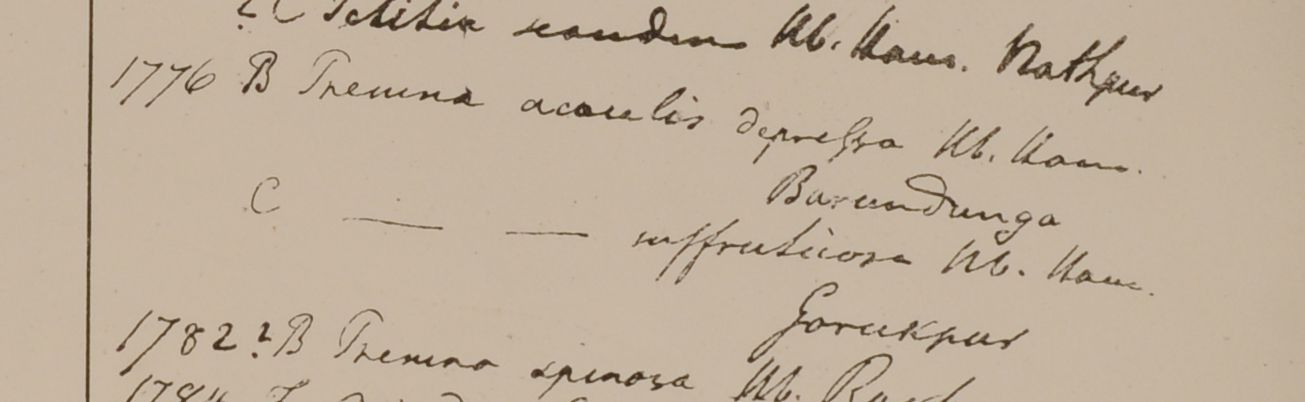 ? C Tetitia scandens Hb. Ham. Nathpur
1776 B Premna acaulis depressa Hb. Ham.
Barundunga
C — — suffruticosa Hb. Ham.
Gorukpur
1782 ? B Premna spinosa Hb. Roxb